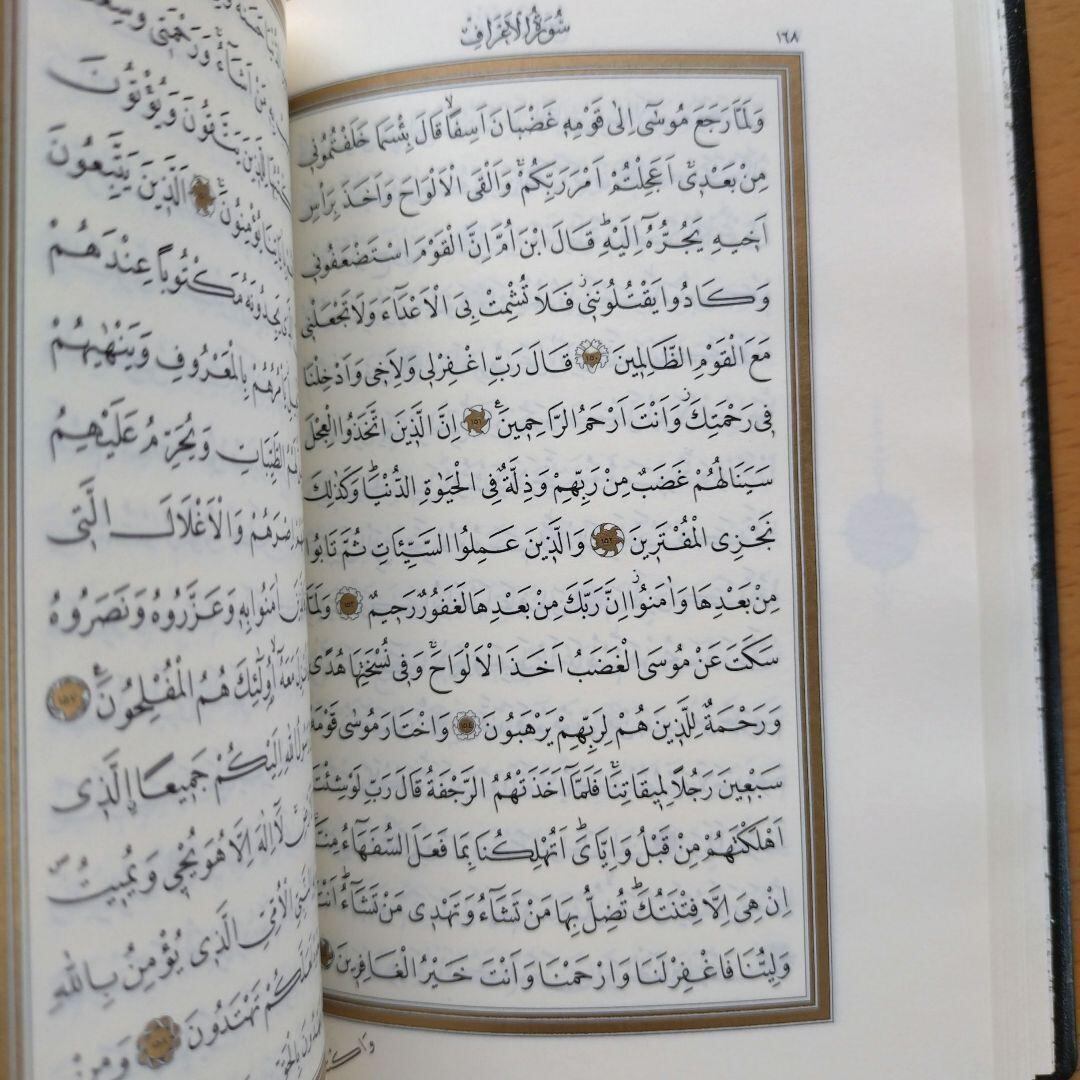 سُورَةُ الْاَعْرَافِ
١٦٨
وَلَمَّا رَجَعَ مُوسٰٓى اِلٰى قَوْمِه۪ غَضْبَانَ اَسِفًاۙ قَالَ بِئْسَمَا خَلَفْتُمُون۪ي
مِنْ بَعْد۪يۚ اَعَجِلْتُمْ اَمْرَ رَبِّكُمْۚ وَاَلْقَى الْاَلْوَاحَ وَاَخَذَ بِرَأْسِ
اَخ۪يهِ يَجُرُّهُٓ اِلَيْهِۜ قَالَ ابْنَ اُمَّ اِنَّ الْقَوْمَ اسْتَضْعَفُون۪ي
وَكَادُوا يَقْتُلُونَن۪يۘ فَلَا تُشْمِتْ بِيَ الْاَعْدَٓاءَ وَلَا تَجْعَلْن۪ي
مَعَ الْقَوْمِ الظَّالِم۪ينَ ١٥٠ قَالَ رَبِّ اغْفِرْ ل۪ي وَلِاَخ۪ي وَاَدْخِلْنَا
ف۪ي رَحْمَتِكَۘ وَاَنْتَ اَرْحَمُ الرَّاحِم۪ينَ۟ ١٥١ اِنَّ الَّذ۪ينَ اتَّخَذُوا الْعِجْلَ
سَيَنَالُهُمْ غَضَبٌ مِنْ رَبِّهِمْ وَذِلَّةٌ فِي الْحَيٰوةِ الدُّنْيَاۜ وَكَذٰلِكَ
نَجْزِي الْمُفْتَر۪ينَ ١٥٢ وَالَّذ۪ينَ عَمِلُوا السَّيِّـَٔاتِ ثُمَّ تَابُوا
مِنْ بَعْدِهَا وَاٰمَنُواۘ اِنَّ رَبَّكَ مِنْ بَعْدِهَا لَغَفُورٌ رَح۪يمٌ ١٥٣ وَلَمَّا
سَكَتَ عَنْ مُوسَى الْغَضَبُ اَخَذَ الْاَلْوَاحَۚ وَف۪ي نُسْخَتِهَا هُدًى
وَرَحْمَةٌ لِلَّذ۪ينَ هُمْ لِرَبِّهِمْ يَرْهَبُونَ ١٥٤ وَاخْتَارَ مُوسٰى قَوْمَهُ
سَبْع۪ينَ رَجُلًا لِم۪يقَاتِنَاۚ فَلَمَّٓا اَخَذَتْهُمُ الرَّجْفَةُ قَالَ رَبِّ لَوْ شِئْتَ
اَهْلَكْتَهُمْ مِنْ قَبْلُ وَاِيَّايَۜ اَتُهْلِكُنَا بِمَا فَعَلَ السُّفَهَٓاءُ مِنَّاۚ
اِنْ هِيَ اِلَّا فِتْنَتُكَۜ تُضِلُّ بِهَا مَنْ تَشَٓاءُ وَتَهْد۪ي مَنْ تَشَٓاءُۜ اَنْتَ
وَلِيُّنَا فَاغْفِرْ لَنَا وَارْحَمْنَا وَاَنْتَ خَيْرُ الْغَافِر۪ينَ
مَنْ اَشَٓاءُۚ وَرَحْمَت۪ي وَسِعَتْ
لِلَّذ۪ينَ يَتَّقُونَ وَيُؤْتُونَ
يُؤْمِنُونَۚ اَلَّذ۪ينَ يَتَّبِعُونَ
يَجِدُونَهُ مَكْتُوبًا عِنْدَهُمْ
بِالْمَعْرُوفِ وَيَنْهٰيهُمْ
الطَّيِّبَاتِ وَيُحَرِّمُ عَلَيْهِمُ
اِصْرَهُمْ وَالْاَغْلَالَ الَّت۪ي
اٰمَنُوا بِه۪ وَعَزَّرُوهُ وَنَصَرُوهُ
مَعَهُٓۙ اُو۬لٰٓئِكَ هُمُ الْمُفْلِحُونَ۟ ١٥٧
اللّٰهِ اِلَيْكُمْ جَم۪يعًاۨ الَّذ۪ي
لَٓا اِلٰهَ اِلَّا هُوَ يُحْي۪ي وَيُم۪يتُۖ
الْاُمِّيِّ الَّذ۪ي يُؤْمِنُ بِاللّٰهِ
لَعَلَّكُمْ تَهْتَدُونَ ١٥٨ وَمِنْ